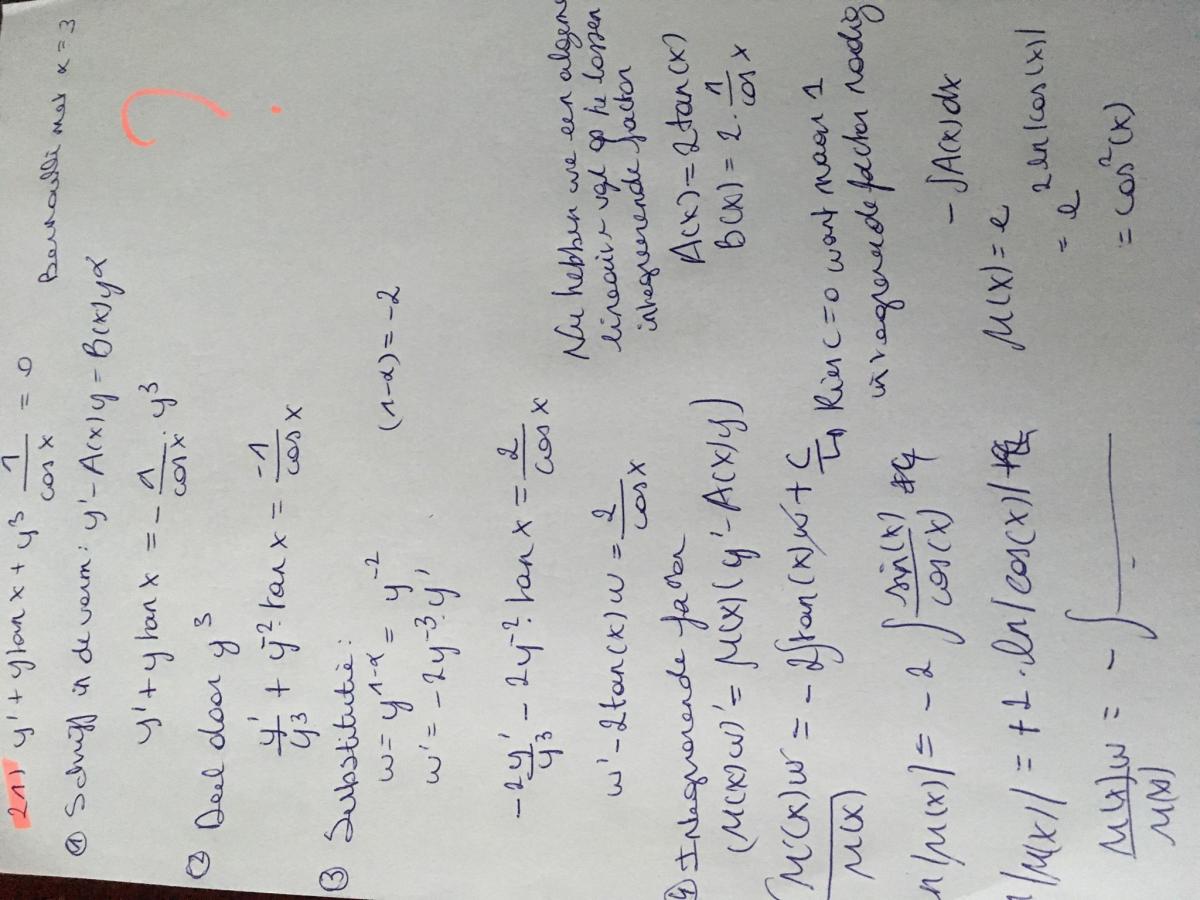 211) y' + y tan x + y³ 1/cos x = 0
Bernoulli met α = 3
① Schrijf in de vorm: y' - A(x)y = B(x)yα
y' + y tan x = - 1/cos x · y³
② Deel door y³
y'/y³ + y⁻² · tan x = -1/cos x
③ Substitutie:
w = y¹⁻α = y⁻² (1-α) = -2
w' = -2y⁻³ · y'
-2y'/y³ - 2y⁻² · tan x = 2/cos x
w' - 2tan(x)w = 2/cos x
Nu hebben we een algeme
lineaire vgl op te lossen
integrerende factor
A(x) = 2tan(x)
B(x) = 2 · 1/cos x
④ Integrerende factor
(μ(x)w)' = μ(x)(y' - A(x)y)
∫ μ'(x)w/μ(x) = -2∫tan(x)w + C
↳ Kies C=0 want maar 1
integrerende factor nodig
n|μ(x)| = -2 ∫ sin(x)/cos(x)
n|μ(x)| = +2 · ln|cos(x)|
μ(x) = e -∫A(x)dx
= e 2ln|cos(x)|
= cos²(x)
μ(x)w/μ(x) = - ∫